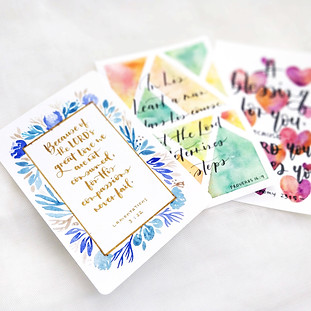 Because of
the LORD's
great love we
are not
consumed,
for His
compassions
never fail.
LAMENTATIONS
3:22
In his
heart a man
plans his course,
but the Lord
determines his
steps
PROVERBS 16:9
A
blessing
for you,
BECAUSE
you